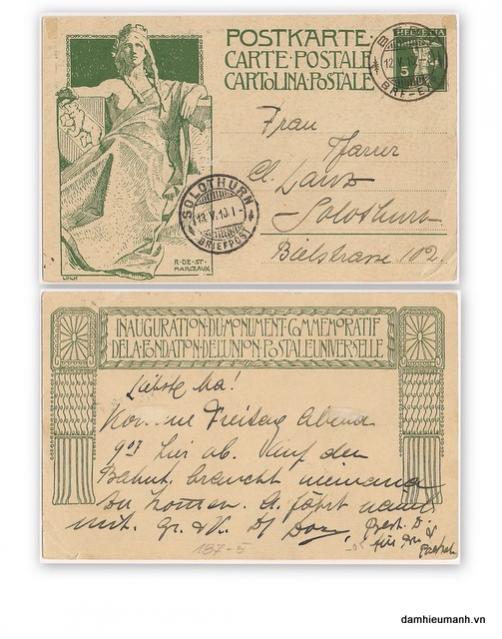 POSTKARTE·
CARTE·POSTALE
CARTOLINA·POSTALE
HELVETIA
5
12.V.
BRF-
Frau
Pfarrer
Cl. Lanz
Solothurn
Bielstrasse 102.
SOLOTHURN
13.V.10.I-
BRIEFPOST
R·DE·ST·
MARCEAUX
INAUGURATION·DU·MONUMENT·COMMEMORATIF
DE·LA·FONDATION·DE·L'UNION·POSTALE·UNIVERSELLE
Liebste Ma!
Freitag Abend
9 07 hier ab. Auf den
Bahnh. braucht niemand
zu kommen. A. fährt
mit. Gr. & K.
187-5
damhieumanh.vn